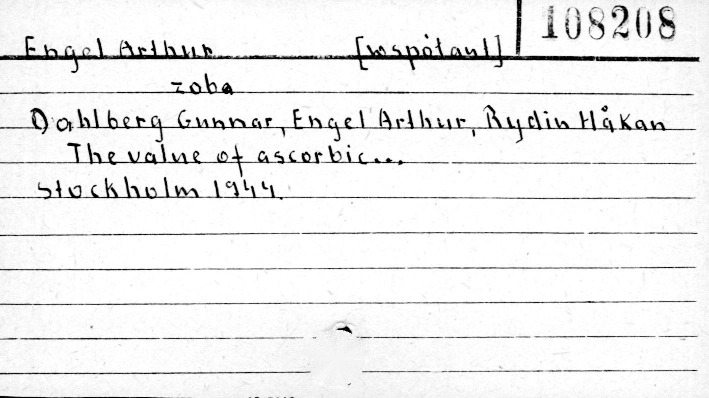 108208
Engel Arthur [współaut]
zoba
Dahlberg Gunnar, Engel Arthur, Rydin Håkan
The value of ascorbic...
Stockholm 1944.